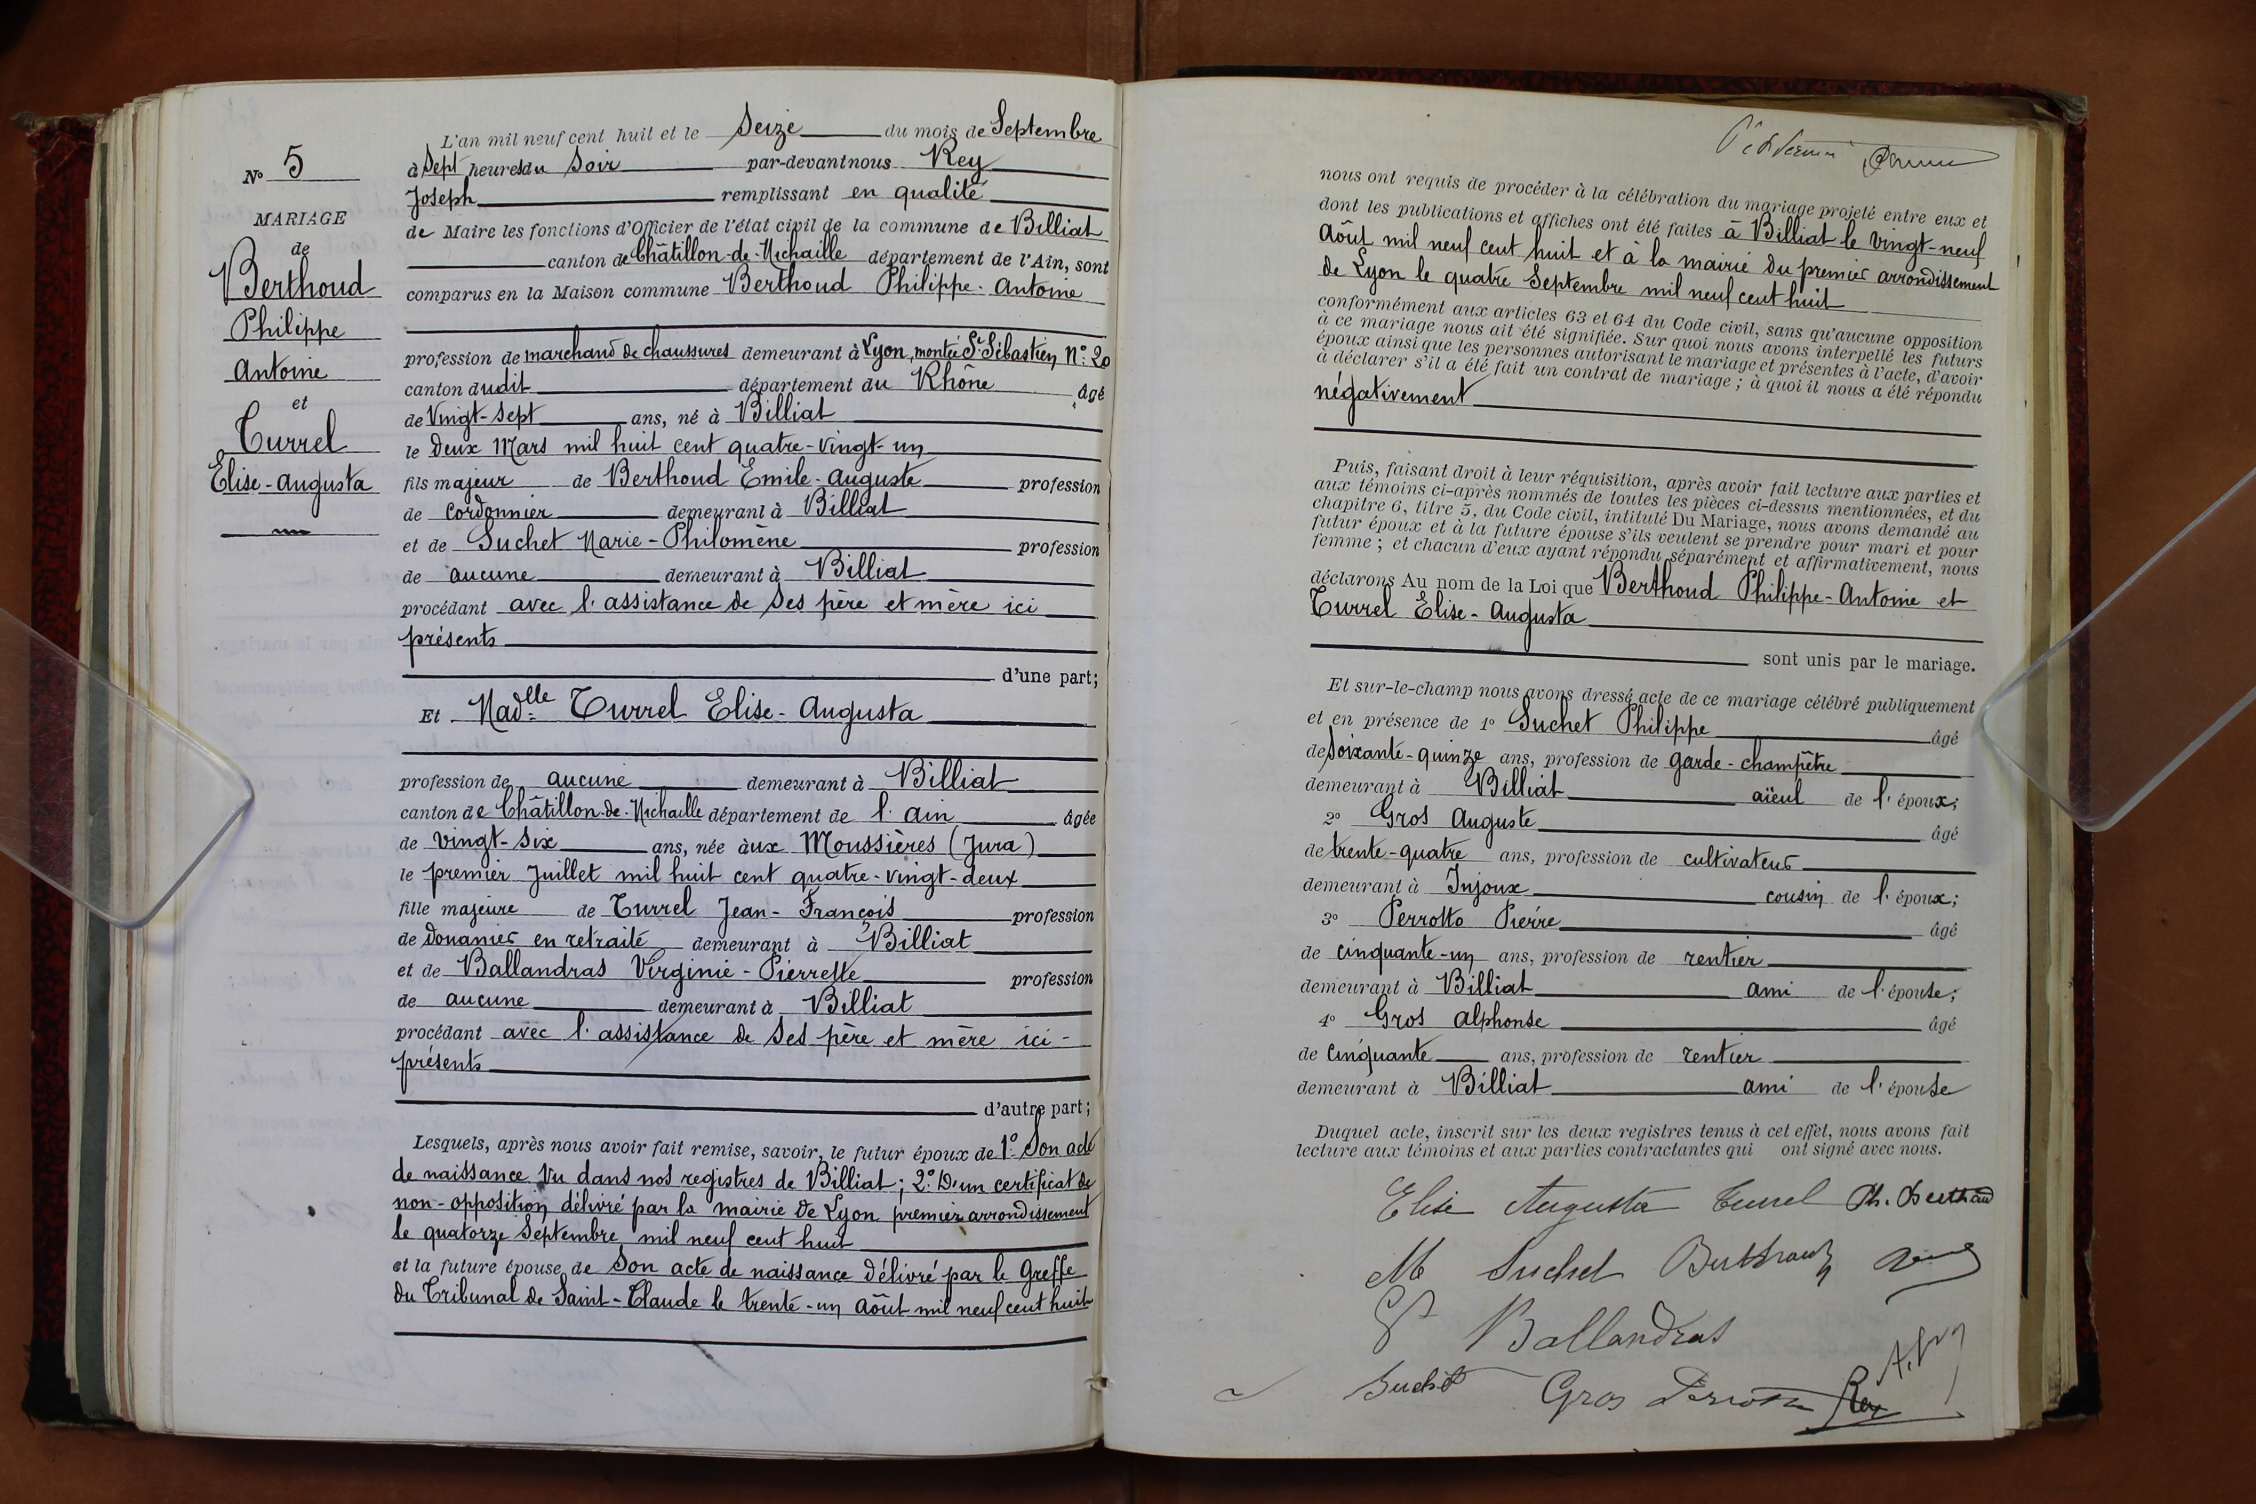 N° 5
MARIAGE
de
Berthoud
Philippe
Antoine
et
Turrel
Elise-Augusta
L'an mil neuf cent huit et le Seize du mois de Septembre
à Sept heures du Soir par-devant nous Rey
Joseph remplissant en qualité
de Maire les fonctions d'Officier de l'état civil de la commune de Billiat
canton de Châtillon-de-Michaille département de l'Ain, sont
comparus en la Maison commune Berthoud Philippe-Antoine
profession de marchand de chaussures demeurant à Lyon, montée St Sébastien, N°: 20
canton dudit département du Rhône âgé
de Vingt-Sept ans, né à Billiat
le Deux Mars mil huit cent quatre-vingt-un
fils majeur de Berthoud Emile-Auguste profession
de cordonnier demeurant à Billiat
et de Suchet Marie-Philomène profession
de aucune demeurant à Billiat
procédant avec l'assistance de Ses père et mère ici
présents
d'une part;
Et Madelle Turrel Elise-Augusta
profession de aucune demeurant à Billiat
canton de Châtillon-de-Michaille département de l'Ain âgée
de vingt-six ans, née aux Moussières (Jura)
le premier Juillet mil huit cent quatre-vingt-deux
fille majeure de Turrel Jean-François profession
de Douanier en retraite demeurant à Billiat
et de Ballandras Virginie-Pierrette profession
de aucune demeurant à Billiat
procédant avec l'assistance de Ses père et mère ici-
présents
d'autre part;
Lesquels, après nous avoir fait remise, savoir, le futur époux de 1° Son acte
de naissance Vu dans nos registres de Billiat; 2° D'un certificat de
non-opposition délivré par la mairie de Lyon premier arrondissement
le quatorze Septembre mil neuf cent huit
et la future épouse, de Son acte de naissance délivré par le Greffe
du Tribunal de Saint-Claude le trente-un Août mil neuf cent huit
nous ont requis de procéder à la célébration du mariage projeté entre eux et
dont les publications et affiches ont été faites à Billiat le vingt-neuf
Août mil neuf cent huit et à la mairie du premier arrondissement
de Lyon le quatre Septembre mil neuf cent huit
conformément aux articles 63 et 64 du Code civil, sans qu'aucune opposition
à ce mariage nous ait été signifiée. Sur quoi nous avons interpellé les futurs
époux ainsi que les personnes autorisant le mariage et présentes à l'acte, d'avoir
à déclarer s'il a été fait un contrat de mariage; à quoi il nous a été répondu
négativement
Puis, faisant droit à leur réquisition, après avoir fait lecture aux parties et
aux témoins ci-après nommés de toutes les pièces ci-dessus mentionnées, et du
chapitre 6, titre 5, du Code civil, intitulé Du Mariage, nous avons demandé au
futur époux et à la future épouse s'ils veulent se prendre pour mari et pour
femme; et chacun d'eux ayant répondu séparément et affirmativement, nous
déclarons Au nom de la Loi que Berthoud Philippe-Antoine et
Turrel Elise-Augusta
sont unis par le mariage.
Et sur-le-champ nous avons dressé acte de ce mariage célébré publiquement
et en présence de 1° Suchet Philippe âgé
de Soixante-quinze ans, profession de garde-champêtre
demeurant à Billiat aïeul de l'époux;
2° Gros Auguste âgé
de trente-quatre ans, profession de cultivateur
demeurant à Injoux cousin de l'époux;
3° Perrotto Pierre âgé
de cinquante-un ans, profession de rentier
demeurant à Billiat ami de l'épouse;
4° Gros Alphonse âgé
de Cinquante ans, profession de rentier
demeurant à Billiat ami de l'épouse
Duquel acte, inscrit sur les deux registres tenus à cet effet, nous avons fait
lecture aux témoins et aux parties contractantes qui ont signé avec nous.
Elise Augusta Turrel Ph. Berthoud
M Suchet Berthoud
Ballandras
Suchet Gros Rey